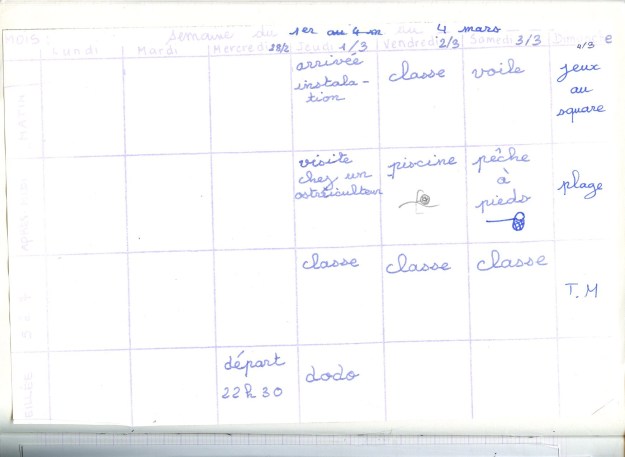 MOIS: semaine du 1er au 4 m au 4 mars
Lundi Mardi Mercredi 28/2 Jeudi 1/3 Vendredi 2/3 Samedi 3/3 Dimanche 4/3
MATIN
arrivée
instala-
tion
classe
voile
jeux
au
square
visite
chez un
ostréiculteur
piscine
pêche
à
pieds
plage
classe
classe
classe
T.M
départ
22h30
dodo